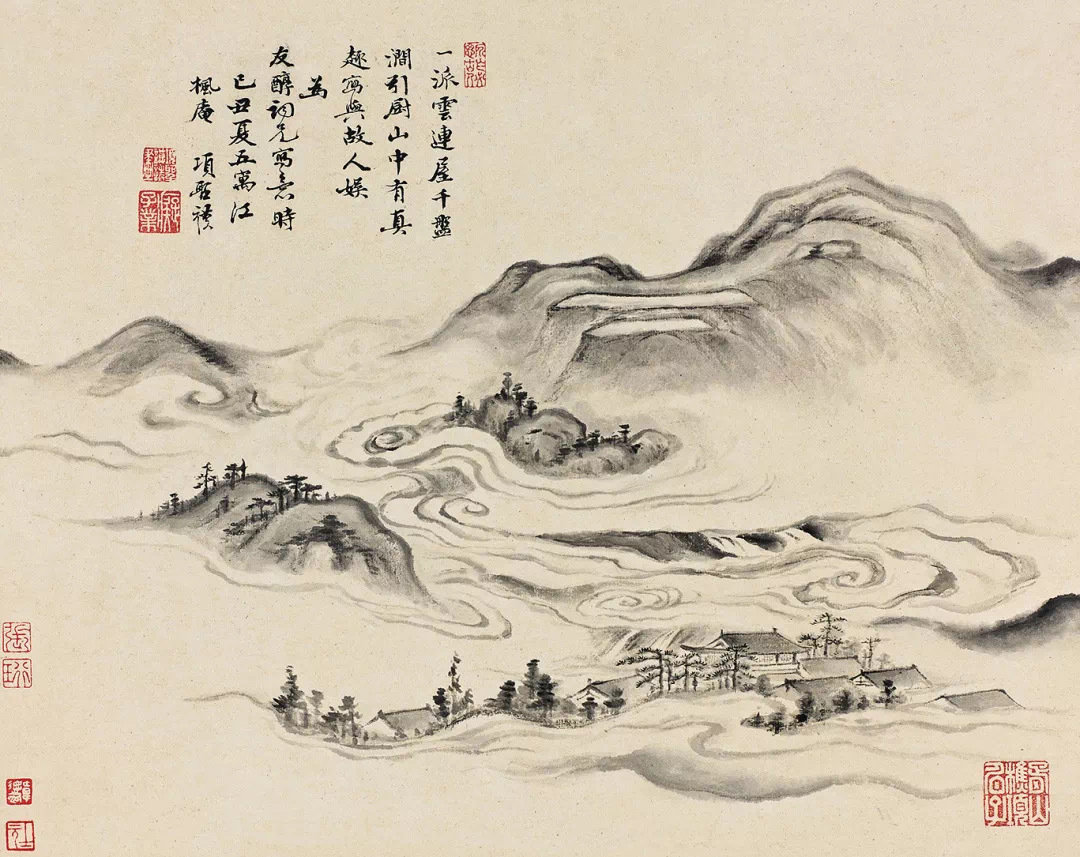 一派雲連屋千盤
澗引厨山中有真
趣寫與故人娛
為
友醇詞兄寫意時
己丑夏五寓江
楓庵 項
張珩